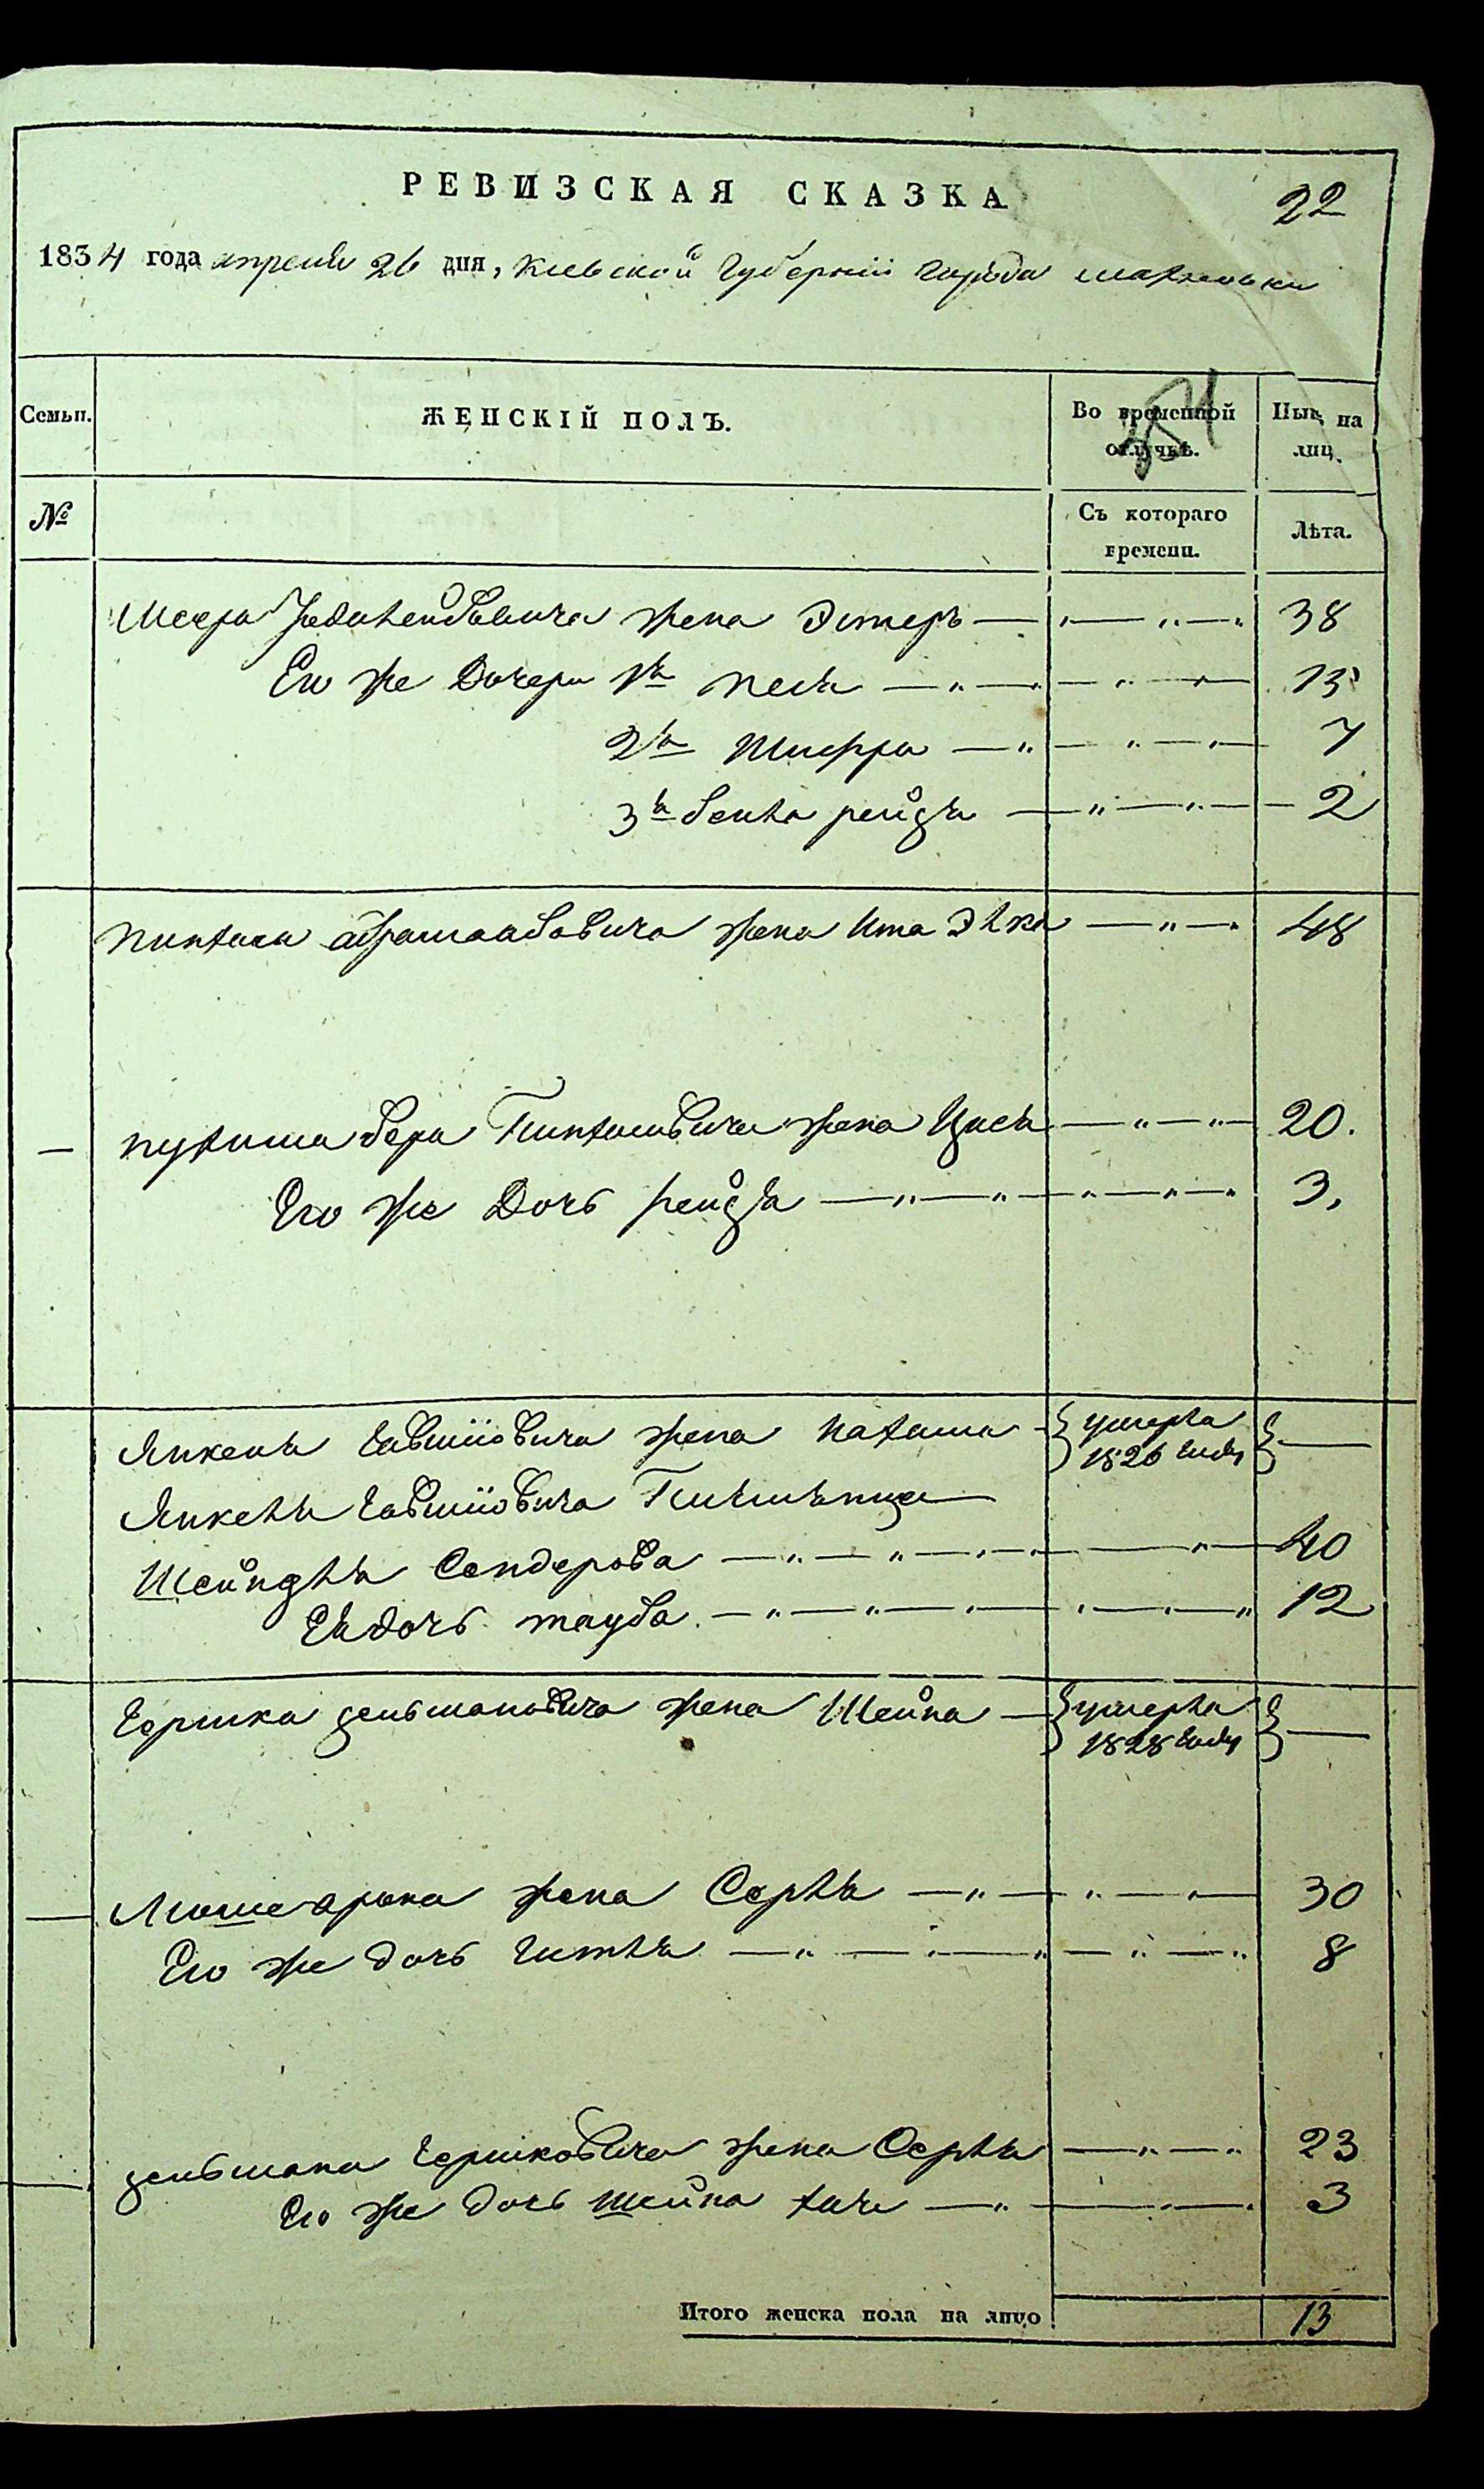 РЕВИЗСКАЯ СКАЗКА
22
1834 года апреля 26 дня, Киевской Губернiи города
Семьи.
ЖЕНСКIЙ ПОЛЪ.
Во временной отлучкѣ.
Нын. на лиц.
№
Съ котораго времени.
Лѣта.
Меера жена Эстеръ 38
Его же Дочери 1я Песя 13
2я Шифра 7
3я бейла рейзя 2
Пинхаса абрамовича жена Ита Элка 48
бера Пинхасовича жена Цися 20.
Его же Дочь рейзя 3.
Янкеля Евшiовича жена умерла 1826 году
Янкеля Евшiовича
Шейндля Сендерова 40
Ея дочь тауба 12
Гершка зельмановича жена Шейна умерла 1828 году
Мошеарона жена Серля 30
Его же дочь гитля 8
зельмана Гершковича жена Серля 23
Его же дочь шейна хая 3
Итого женска пола на лицо 13